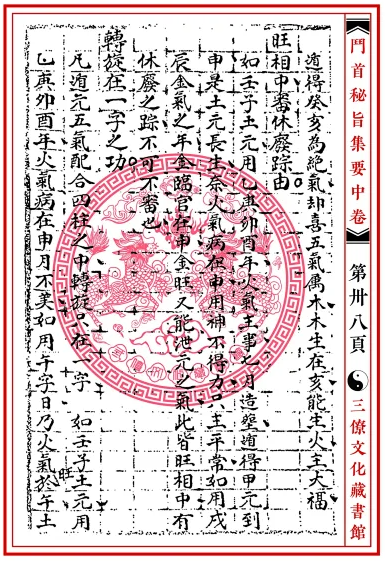 鬥首秘旨集要中卷
第卅八頁
三僚文化藏書館
遁得癸亥為絕氣却喜五氣属木木生在亥能生火主大福
旺相中審休廢踪由
如壬子土元用乙庚卯酉年火氣主事七月造塟遁得甲元到
申是土元長生奈火氣病在申用神不得力只主平常如用戌
辰金氣之年金臨官在申金旺又能泄元之氣此皆旺相中有
休廢之踪不可不審也
轉旋在一字之功
凡遁元五氣配合四柱之中轉旋只在一字 如壬子土元用
乙庚卯酉年火氣病在申月不美如用午字日乃火氣旺於午土